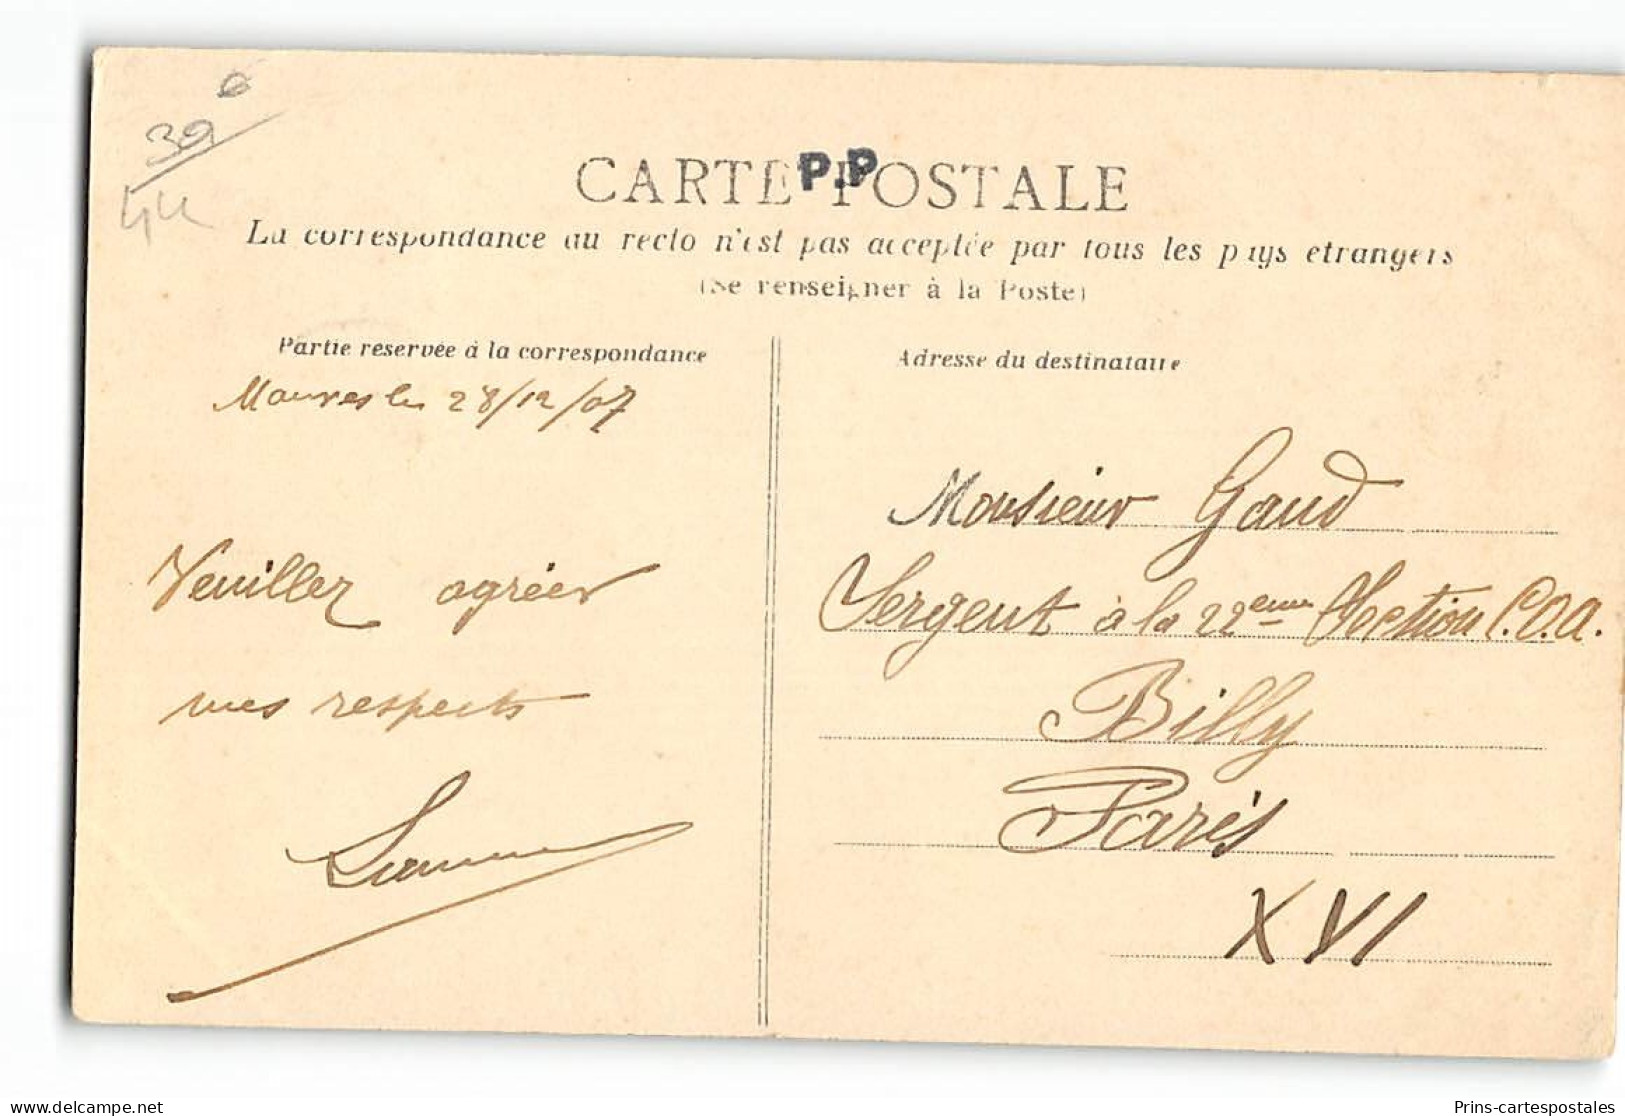 6
39
44
CARTE POSTALE
P.P
La correspondance au recto n'est pas acceptée par tous les pays etrangers
(Se renseigner à la Poste)
Partie reservée à la correspondance
Mauves le 28/12/07
Veuillez agréer
mes respects
Adresse du destinataire
Monsieur Gaud
Sergent à la 22eme Section C.O.A.
Billy
Paris
XVI
Prins-cartespostales